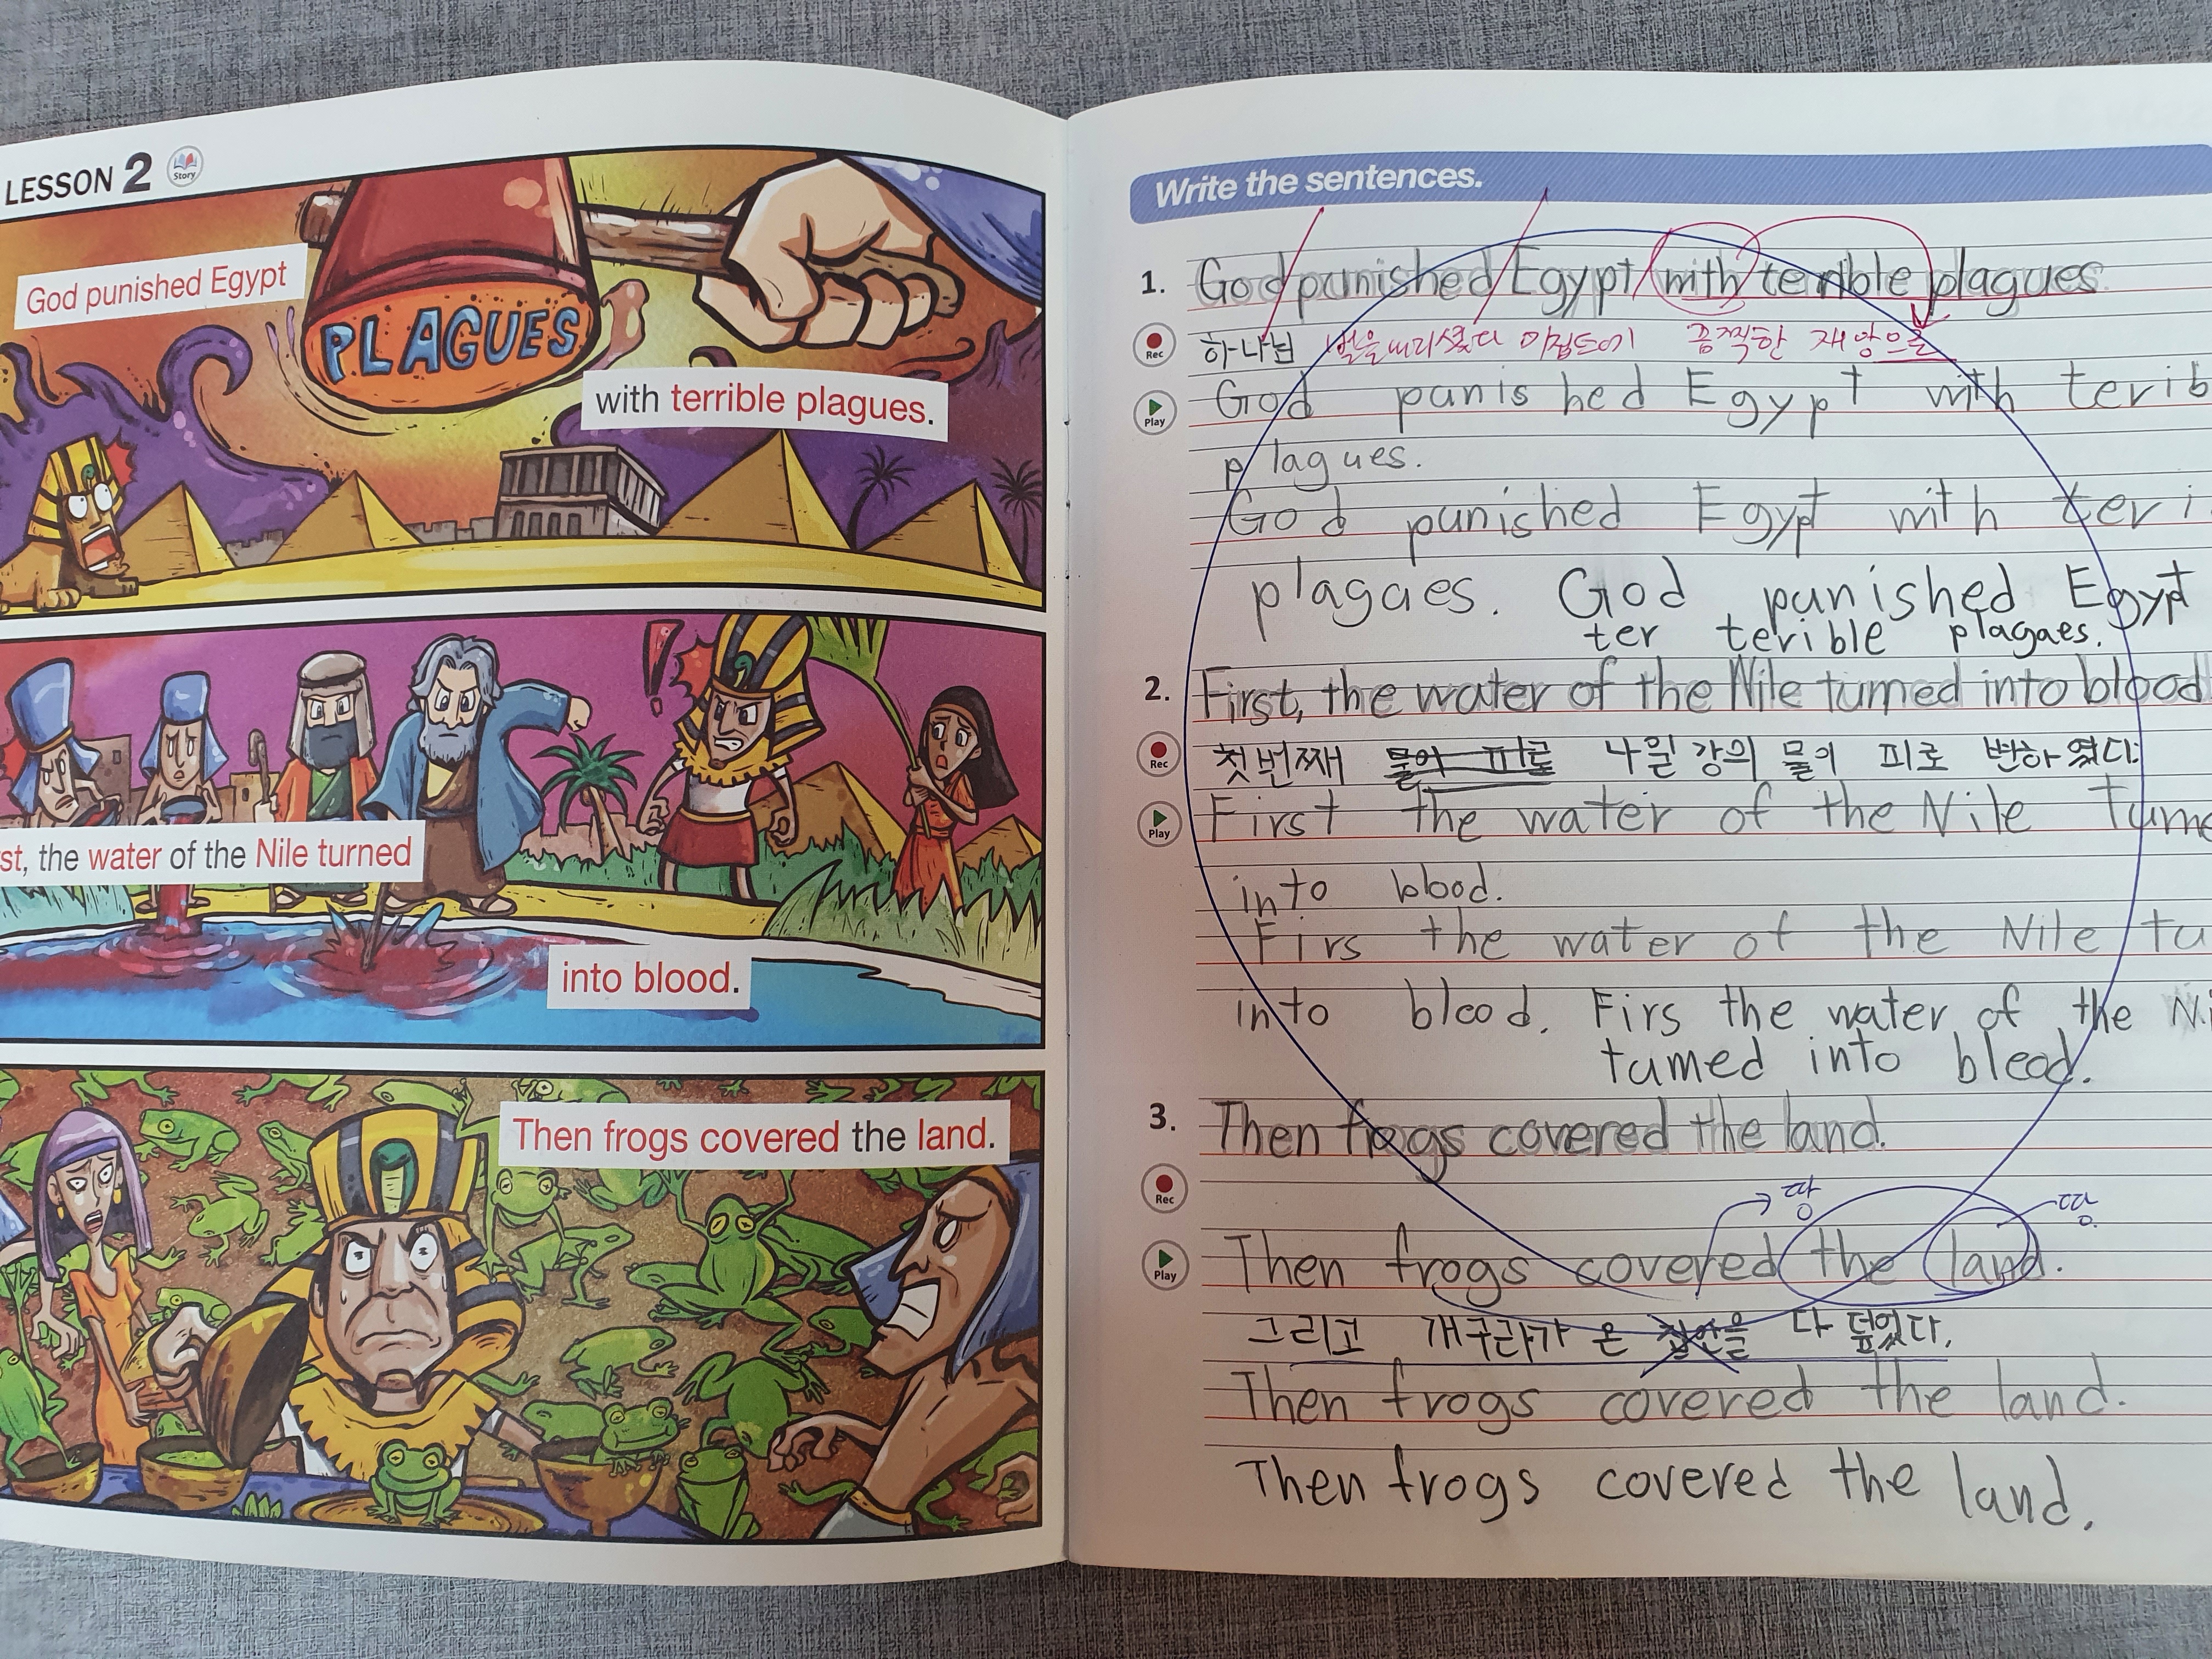 LESSON 2
Story
God punished Egypt
PLAGUES
with terrible plagues.
st, the water of the Nile turned
into blood.
Then frogs covered the land.
Write the sentences.
1. God punished Egypt with terrible plagues
Rec
하나님 벌을내리셨다 이집트에 끔찍한 재앙으로
Play
God punished Egypt with terib
plagues.
God punished Egypt with teri
plagaes. God punished Egypt
ter terible plagaes.
2. First, the water of the Nile turned into blood
Rec
첫번째 나일강의 물이 피로 변하였다.
Play
First the water of the Nile turne
into blood.
Firs the water of the Nile tu
into bleod. Firs the water of the Ni
turned into bleod.
3. Then frogs covered the land.
Rec
땅 땅
Play
Then frogs covered the land.
그리고 개구리가 온 집안을 다 덮었다.
Then frogs covered the land.
Then frogs covered the land.